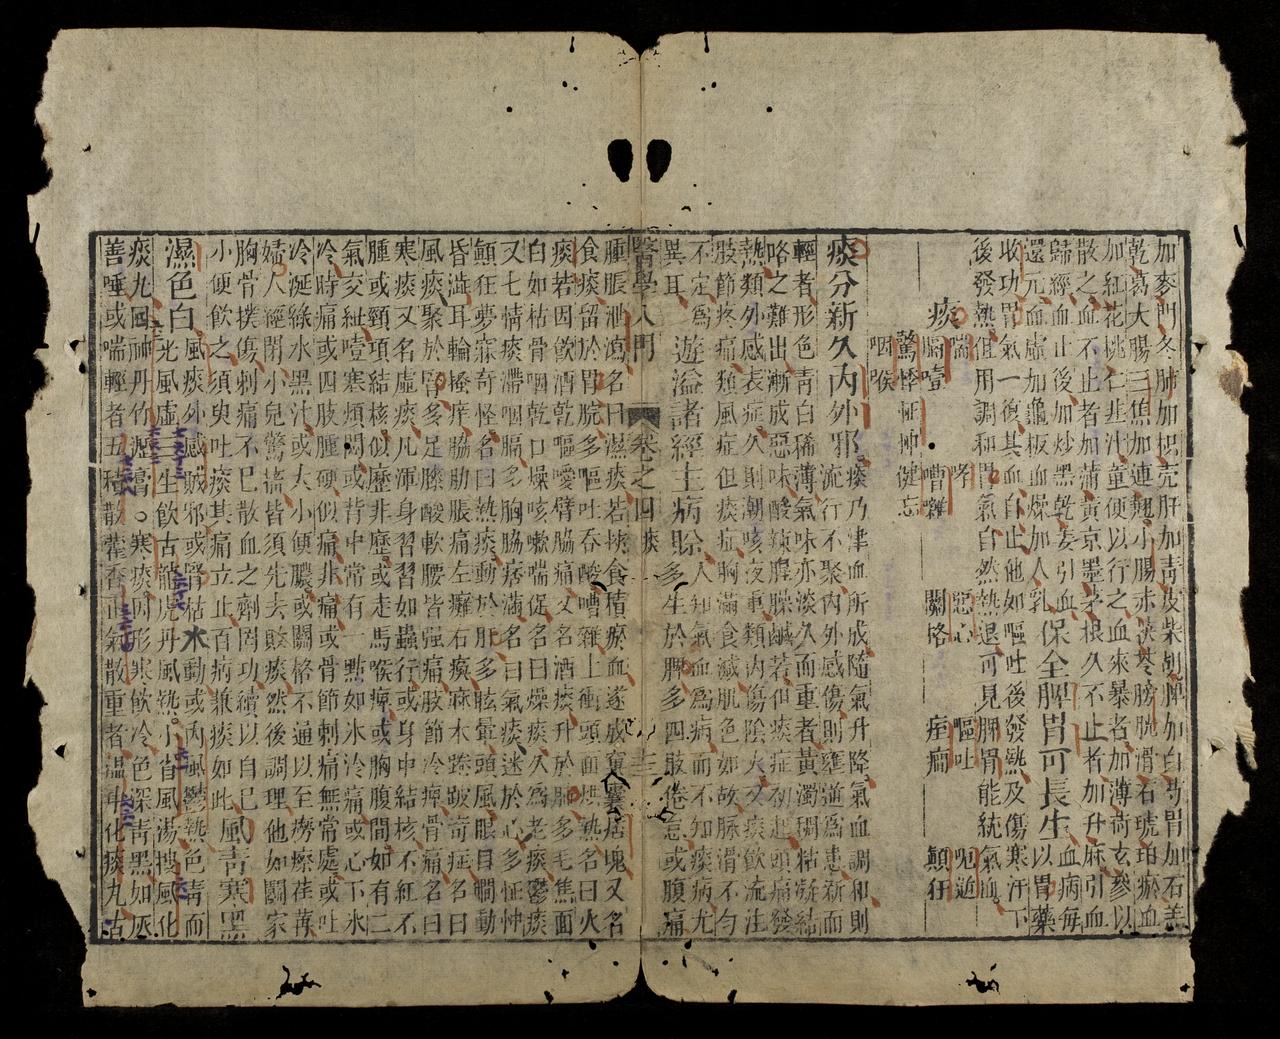 加麥門冬肺加枳壳肝加青皮柴胡脾加白芍胃加石羔
乾葛大腸三焦加連翹小腸赤茯苓膀胱滑石琥珀瘀血
加紅花桃仁韭汁童便以行之血來暴者加薄荷玄參以
散之血不止者加蒲黃京墨茅根久不止者加升麻引血
歸經血止後加炒黑乾姜引血
保全脾胃可長生血病每
還元血虛加龜板血燥加人乳
以胃藥
收功胃氣一復其血自止他如嘔吐後發熱及傷寒汗下
後發熱但用調和胃氣自然熱退可見脾胃能統氣血
痰
喘 哮 惡心 嘔吐 呃逆
膈噎 嘈雜 關格 痓癎 顛狂
驚悸怔忡健忘
咽喉
痰分新久內外邪痰乃津血所成隨氣升降氣血調和則
流行不聚內外感傷則壅逆爲患新而
輕者形色青白稀薄氣味亦淡久而重者黃濁稠粘凝結
咯之難出漸成惡味酸辣腥臊鹹苦但痰症初起頭痛發
熱類外感表症久則潮咳夜重類內傷陰火又痰飲流注
肢節疼痛類風症但痰症胸滿食減肌色如故脉滑不勻
不定爲
異耳
遊溢諸經主病賒人知氣血爲病而不知痰病尤
多生於脾多四肢倦怠或腹痛
醫學入門 卷之四 痰
腫脹泄瀉名曰濕痰若挾食積瘀血遂成窠囊痞塊又名
食痰留於胃脘多嘔吐吞酸嘈雜上衝頭面烘熱名曰火
痰若因飲酒乾嘔噯臂脇痛又名酒痰升於肺多毛焦面
白如枯骨咽乾口燥咳嗽喘促名曰燥痰久爲老痰鬱痰
又七情痰滯咽膈多胸脇痞滿名曰氣痰迷於心多怔忡
顛狂夢寐奇怪名曰熱痰動於肝多眩暈頭風眼目瞤動
昏澁耳輪搔痒脇肋脹痛左癱右瘓麻木跛蹷奇症名曰
風痰聚於腎多足膝酸軟腰背强痛肢節冷痺骨痛名曰
寒痰又名虛痰凡渾身習習如蟲行或身中結核不紅不
腫或頸項結核似癧非癧或走馬喉痺或胸腹間如有二
氣交紐噎寒煩悶或背中常有一點如氷冷痛或心下氷
冷時痛或四肢腫硬似痛非痛或骨節刺痛無常處或吐
冷涎綠水黑汁或大小便膿或關格不通以至癆瘵荏苒
婦人經閉小兒驚搐皆須先去敗痰然後調理他如鬪家
胸骨撲傷刺痛不已散血之劑罔功續以自己
小便飲之須臾吐痰其痛立止百病兼痰如此
風青寒黑
濕色白
風痰外感賊邪或腎枯
木動或內風鬱熱色青而
光風虛三生飲古龍虎丹風熱小省風湯搜風化
痰九回神丹竹瀝膏○寒痰因形寒飲冷色深青黑如灰
善唾或喘輕者五積散藿香正氣散重者溫中化痰九古